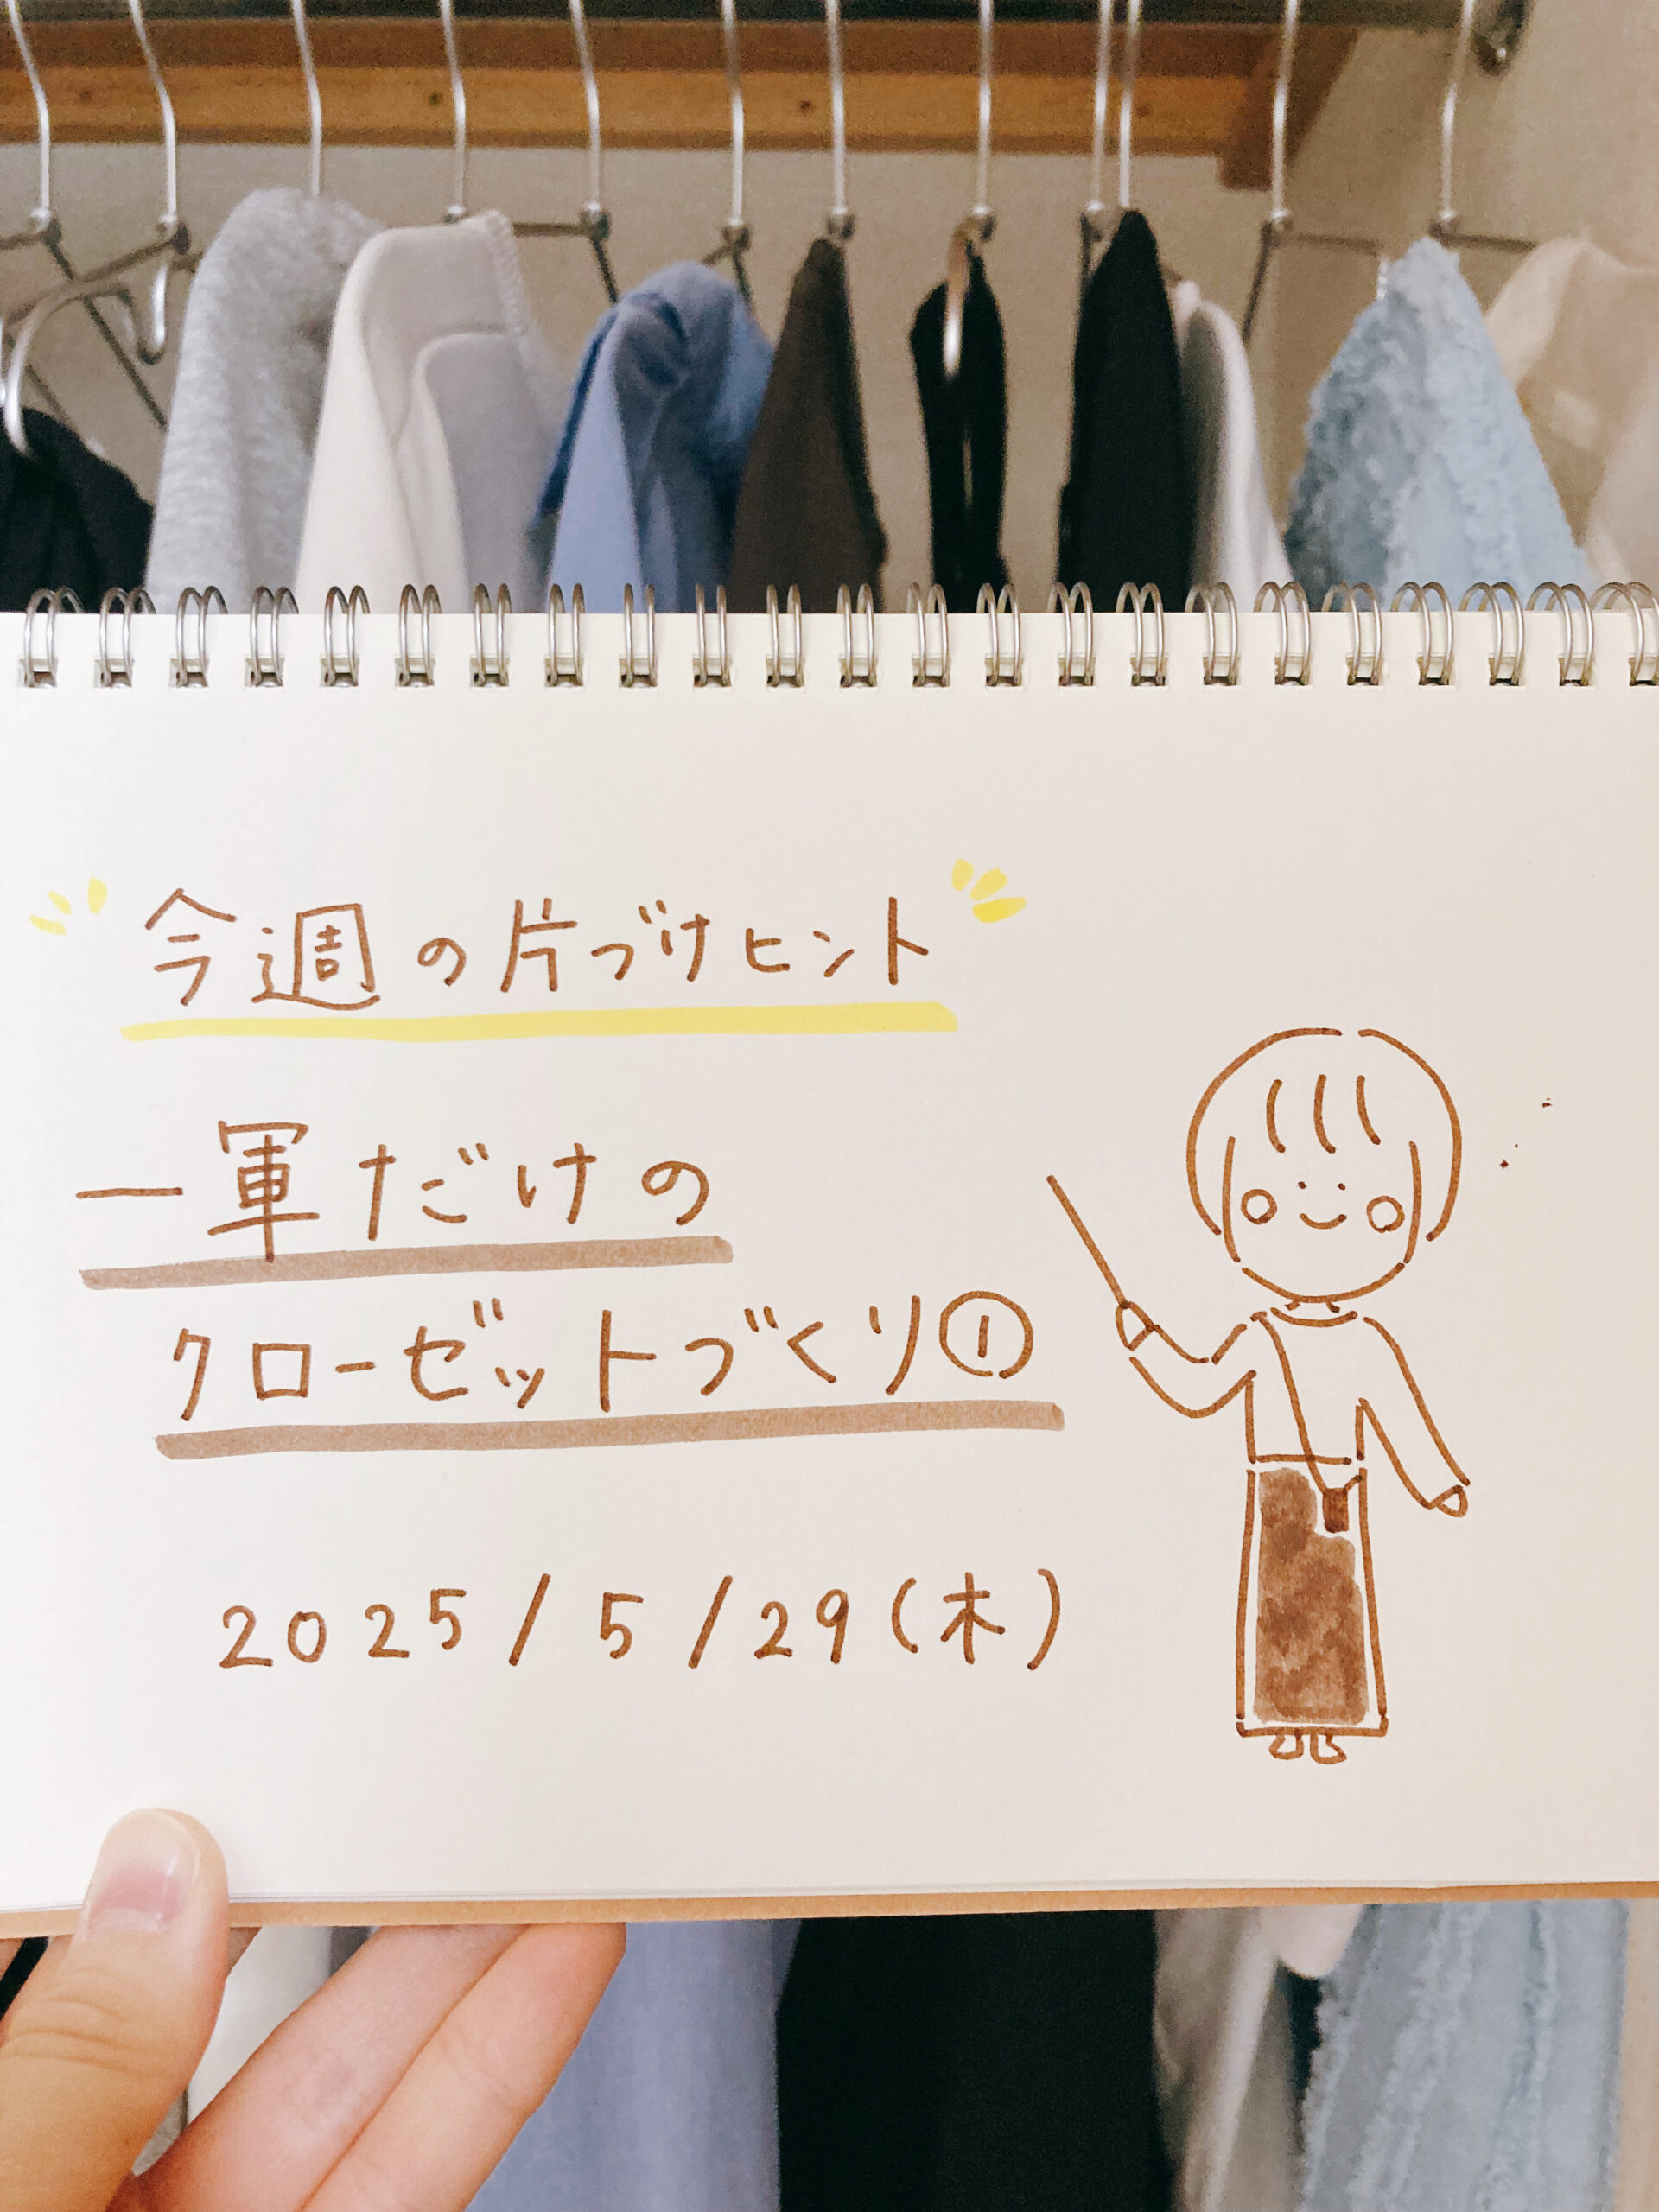 今週の片づけヒント
一軍だけの
クローゼットづくり①
2025/5/29(木)